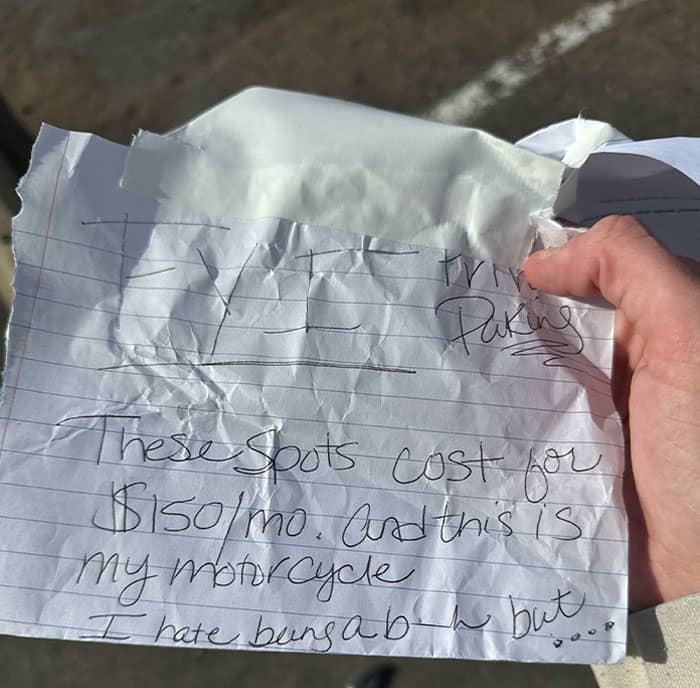 FYI
Paking
These spots cost for
$150/mo. and this is
my motorcycle
I hate being a b—h but....